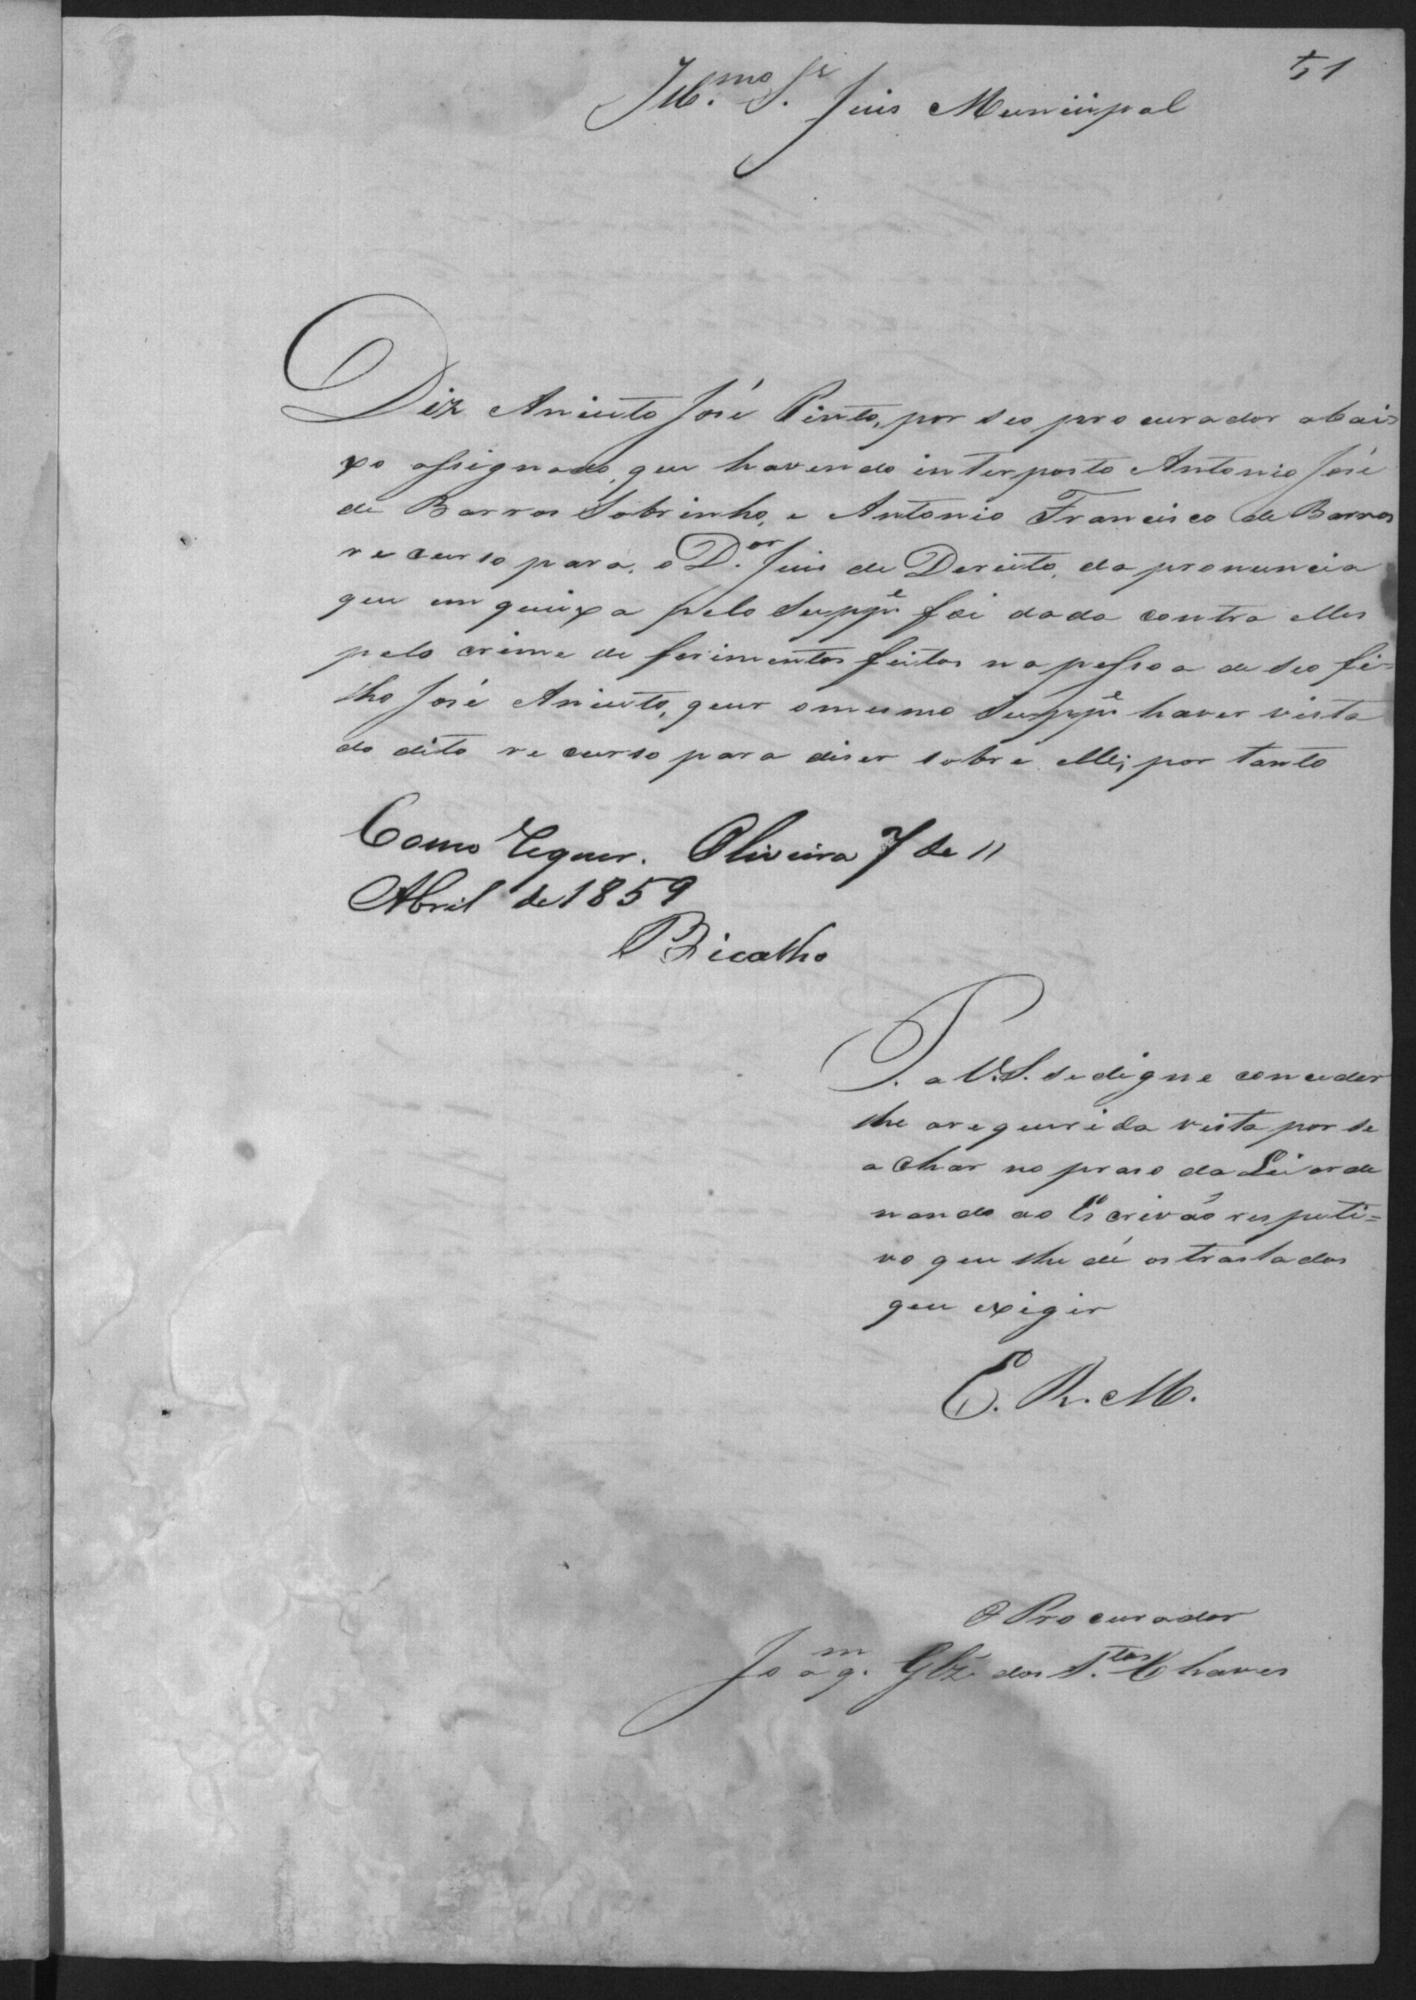 51
Ill.mo S.r Juis Municipal
Diz Aniceto José Pinto, por seo procurador abai-
xo assignado, que havendo interposto Antonio José
de Barros Sobrinho, e Antonio Francisco de Barros
recurso para, o D.or Juis de Dereito, da pronuncia
que em queixa pelo Supp.e foi dada contra elles
pelo crime de ferimentos feitos na pessoa de seo fi=
lho José Aniceto, quer o mesmo Supp.e haver vista
do dito recurso para diser sobre elle; por tanto
Como requer. Oliveira 7 de //
Abril de 1859
Bicalho
P. a V.S. se digne conceder
lhe a requerida vista por se
achar no praso da Lei orde
nando ao Escrivão respeti=
vo que lhe dê os traslados
que exigir
E. R. M.
O Procurador
Joaq.m Glz dos S.tos Chaves